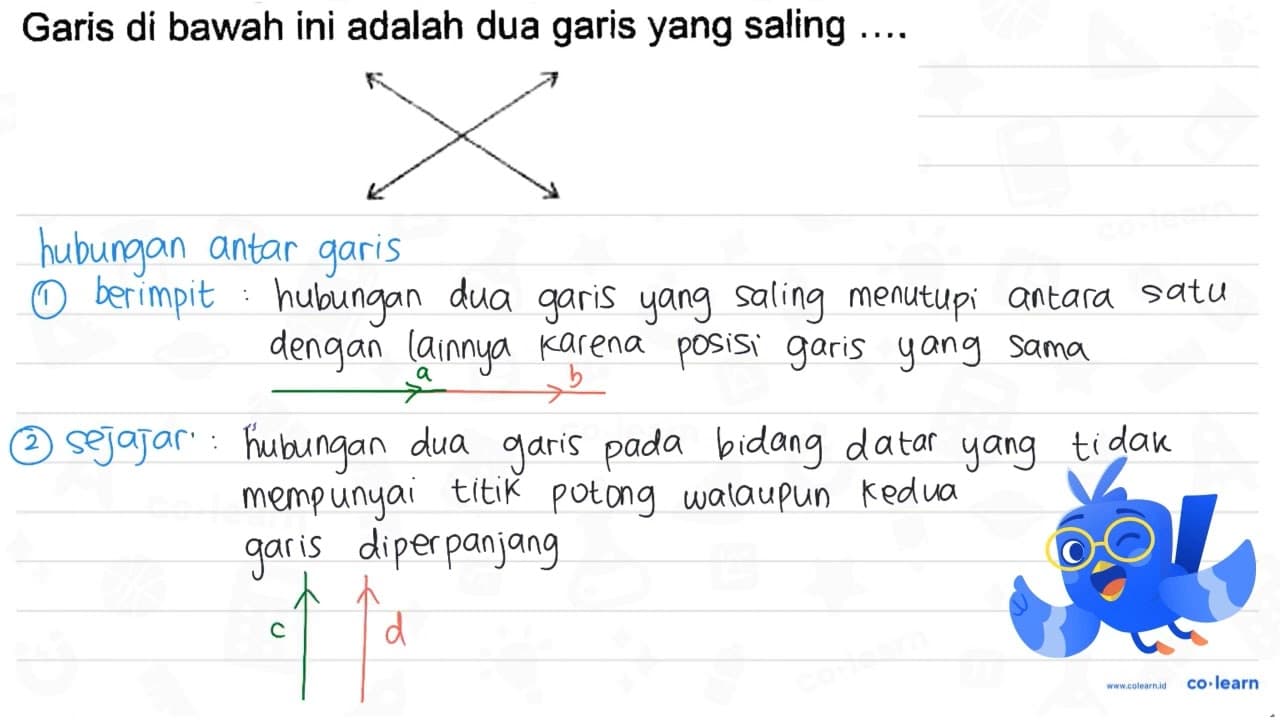 Garis di bawah ini adalah dua garis yang saling ....
hubungan antar garis
① berimpit : hubungan dua garis yang saling menutupi antara satu
dengan lainnya karena posisi garis yang sama
a b
② sejajar : hubungan dua garis pada bidang datar yang tidak
mempunyai titik potong walaupun kedua
garis diperpanjang
c d
www.colearn.id co·learn